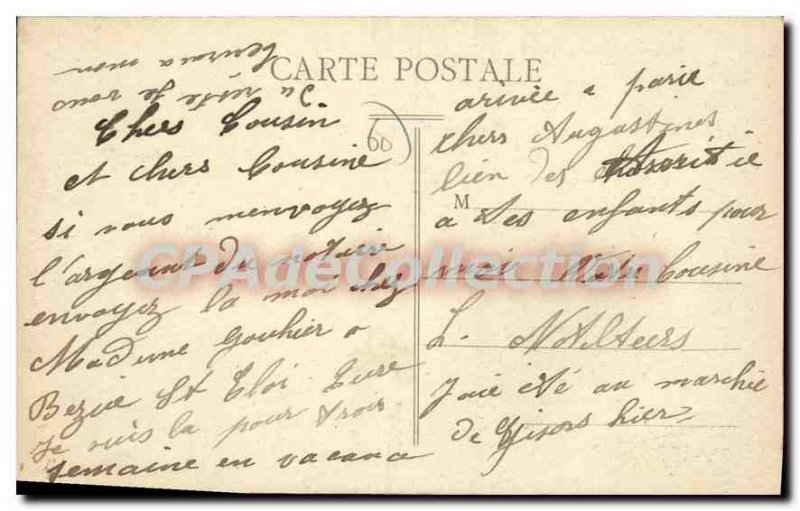 CARTE POSTALE
Chers Cousin
et chers Cousine
si vous m'envoyez
l'argeant du notaire
envoyez la moi chez
Madame Gouhier a
Bezue St Eloi Eure
Je suis la pour trois
semaine en vacanca
arivée a paris
chers Augustines
bien des
M
a Les enfants pour
moi Votre Cousine
L.
J'aie été au marchie
de Gisors hier
60
CPAdeCollection